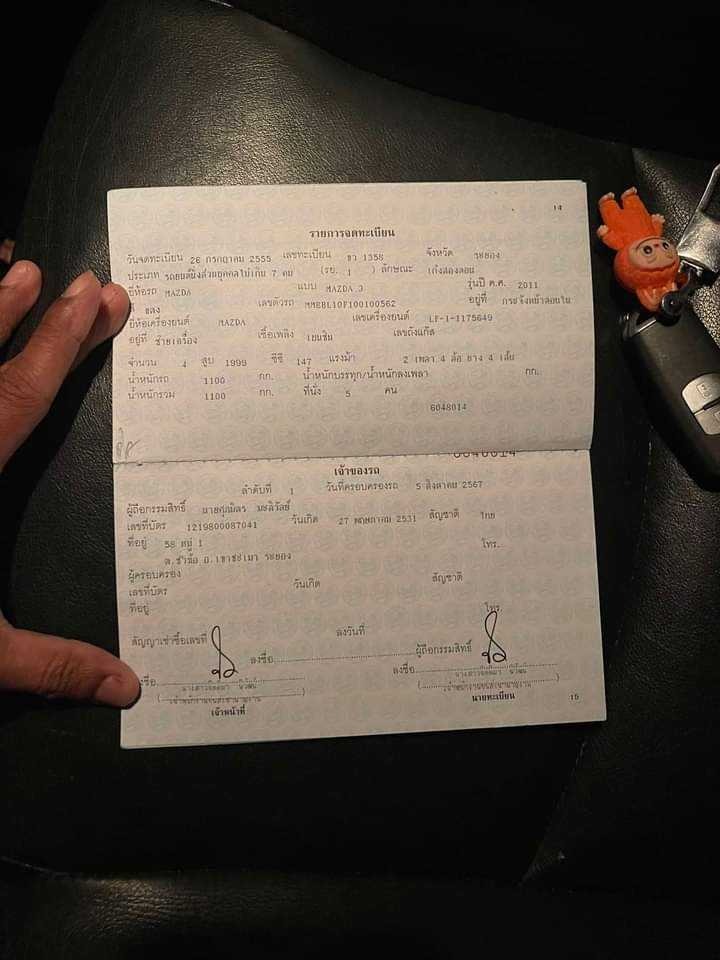 14
รายการจดทะเบียน
วันจดทะเบียน 26 กรกฎาคม 2555 เลขทะเบียน ขว 1358 จังหวัด ระยอง
ประเภท รถยนต์นั่งส่วนบุคคลไม่เกิน 7 คน (รย. 1 ) ลักษณะ เก๋งสองตอน
ยี่ห้อรถ MAZDA แบบ MAZDA 3 รุ่นปี ค.ศ. 2011
สี แดง เลขตัวรถ อยู่ที่
ยี่ห้อเครื่องยนต์ MAZDA เลขเครื่องยนต์ LF-1-1175649
อยู่ที่ ซ้ายเครื่อง เชื้อเพลิง เบนซิน เลขถังแก๊ส
จำนวน 4 สูบ 1999 ซีซี 147 แรงม้า 2 เพลา 4 ล้อ ยาง 4 เส้น
น้ำหนักรถ 1100 กก. น้ำหนักบรรทุก/น้ำหนักลงเพลา กก.
น้ำหนักรวม 1100 กก. ที่นั่ง 5 คน
6048014
6048014
เจ้าของรถ
ลำดับที่ 1 วันที่ครอบครองรถ 5 สิงหาคม 2567
ผู้ถือกรรมสิทธิ์ นายศุภมิตร มะลิวัลย์
เลขที่บัตร 1219800087041 วันเกิด 27 พฤษภาคม 2531 สัญชาติ ไทย
ที่อยู่ 58 หมู่ 1 โทร.
ต.ชำฆ้อ อ.เขาชะเมา ระยอง
ผู้ครอบครอง
เลขที่บัตร วันเกิด สัญชาติ
ที่อยู่ โทร.
สัญญาเช่าซื้อเลขที่ ลงวันที่
ลงชื่อ ผู้ถือกรรมสิทธิ์
ลงชื่อ ลงชื่อ
เจ้าพนักงานขนส่งชำนาญงาน เจ้าพนักงานขนส่งชำนาญงาน
เจ้าหน้าที่ นายทะเบียน 15